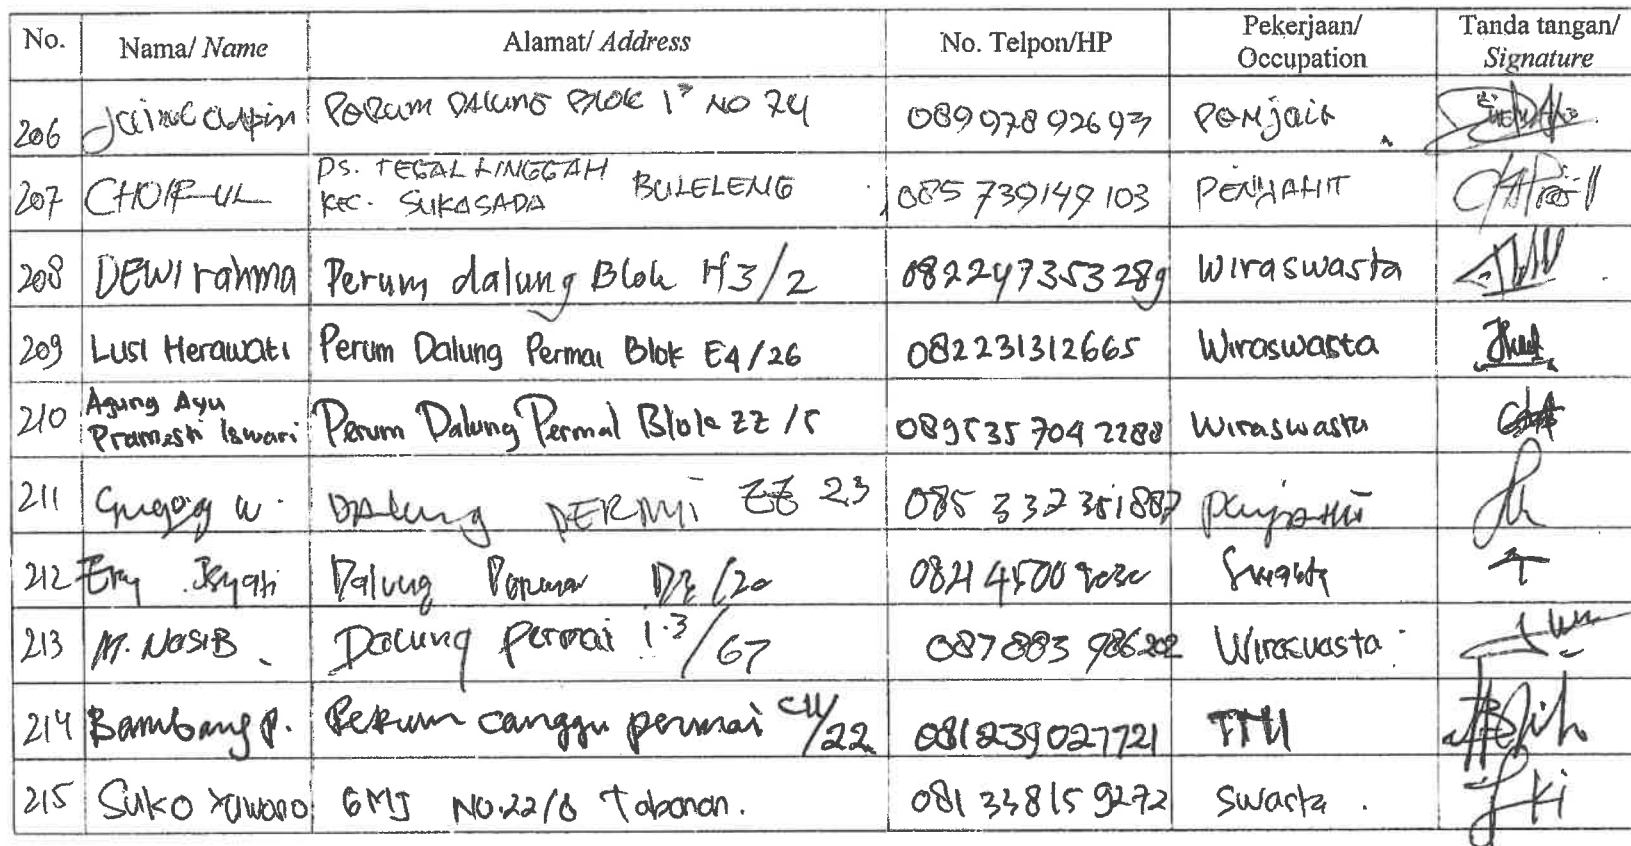 No. Nama/ Name Alamat/ Address No. Telpon/HP Pekerjaan/ Occupation Tanda tangan/ Signature
206 PERUM DALUNG BLOK NO 74 089 978 926 93 PENjait
207 CHOIRUL DS. TEGAL LINGGAH KEC. SUKASADA BULELENG 085 739149 103 PENJAHIT
208 DEWI rahma Perum dalung Blok H3/2 082247353289 Wiraswasta
209 Lusi Herawati Perum Dalung Permai Blok E4/26 082231312665 Wiraswasta
210 Agung Ayu Pramesti Iswari Perum Dalung Permai Blok ZZ /5 0895 35 704 2288 Wiraswasta
211 W. DALUNG PERMAI ZZ 23 085 332 351887 penjahit
212 Dalung Permai /20 Swasta
213 M. NASIB Dalung permai 1.3/67 087883 986202 Wiraswasta
214 Bambang P. Perum canggu permai /22 081239027721
215 Suko GMJ NO.22/B Tabanan. 081 338159272 Swasta.